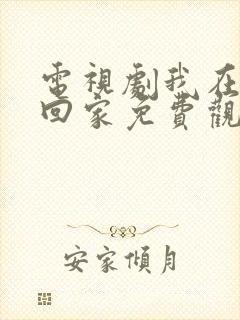 電視劇我在
回家免費觀
安家傾月